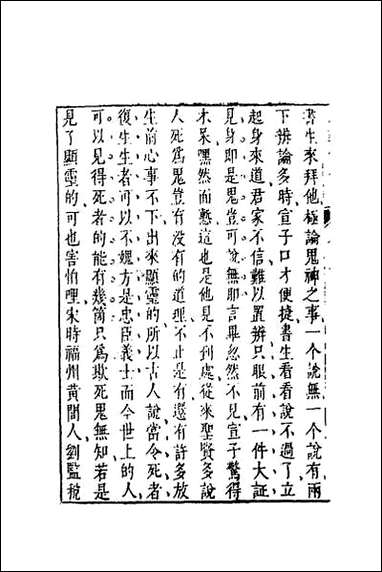 書生來拜他極論鬼神之事一个說無一个說有兩
下辨論多時宣子口才便捷書生看看說不過了立
起身來道君家不信難以置辨只眼前有一件大証
見身即是鬼豈可說無耶言畢忽然不見宣子驚得
木呆嘿然而慙這也是他見不到處從來聖賢多說
人死爲鬼豈有没有的道理不止是有還有許多放
生前心事不下出來顯靈的所以古人說當令死者
復生生者可以不媿方是忠臣義士而今世上的人
可以見得死者的能有幾箇只爲欺死鬼無知若是
見了顯靈的可也害怕哩宋時福州黃閭人劉監稅